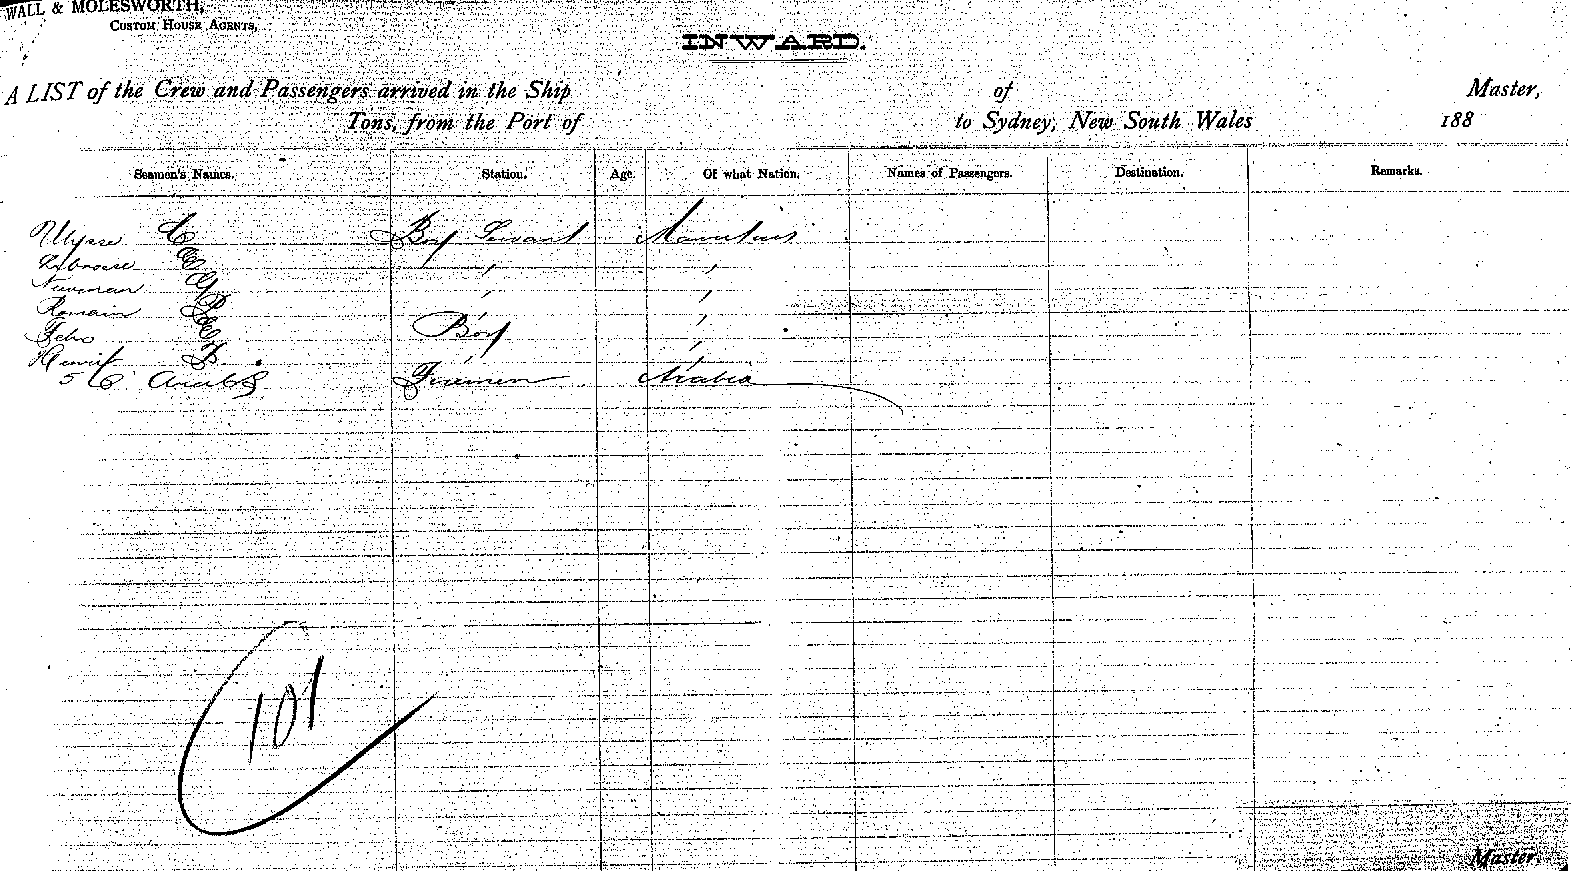 WALL & MOLESWORTH,
CUSTOM HOUSE AGENTS,
INWARD.
A LIST of the Crew and Passengers arrived in the Ship of Master,
Tons, from the Port of to Sydney, New South Wales 188
Seamen's Names. Station. Age. Of what Nation. Names of Passengers. Destination. Remarks.
Ulysse C Boy Servant Mauritius
Ambroise " "
Newman " "
Romain " "
Boy "
"
5 Arabs Firemen Arabia
101
Master.